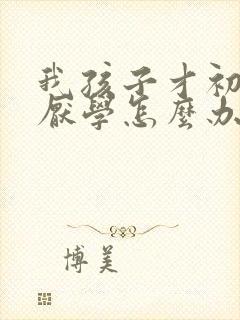 我孩子才初
厭學怎麼办
博美